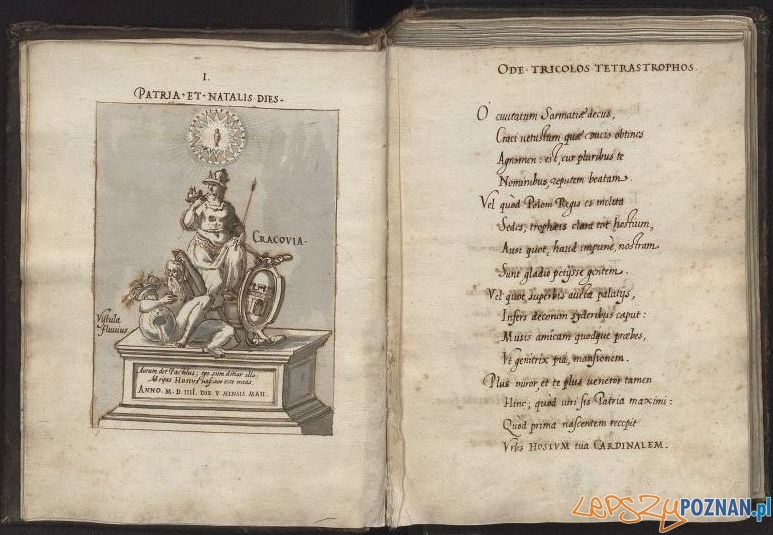 I.
PATRIA · ET · NATALIS DIES -
CRACOVIA ·
Vistula
fluuius.
Aurum det Pactolus; ego sum ditior illo:
Ad ripas HOSIVS nascitur ecce meas.
ANNO. M. D. IIII. DIE V. MENSIS MAII.
ODE · TRICOLOS TETRASTROPHOS.
O ciuitatum Sarmatiæ decus,
Craci uetustum quæ ducis obtines
Agnomen: est, cur pluribus te
Nominibus reputem beatam.
Vel quòd Poloni Regis es inclita
Sedes, trophæis clara tot hostium,
Ausi quot, haud impune, nostram
Sunt gladio petijsse gentem.
Vel quòt superbis aucta palatijs,
Infers decorum syderibus caput:
Musis amicam quodque præbes,
Vt genitrix pia, mansionem.
Plus miror, et te plus ueneror tamen
Hinc; quòd uiri sis Patria maximi:
Quòd prima nascentem recepit
Vrbs HOSIVM tua CARDINALEM.
LEPSZYPOZNAN.pl